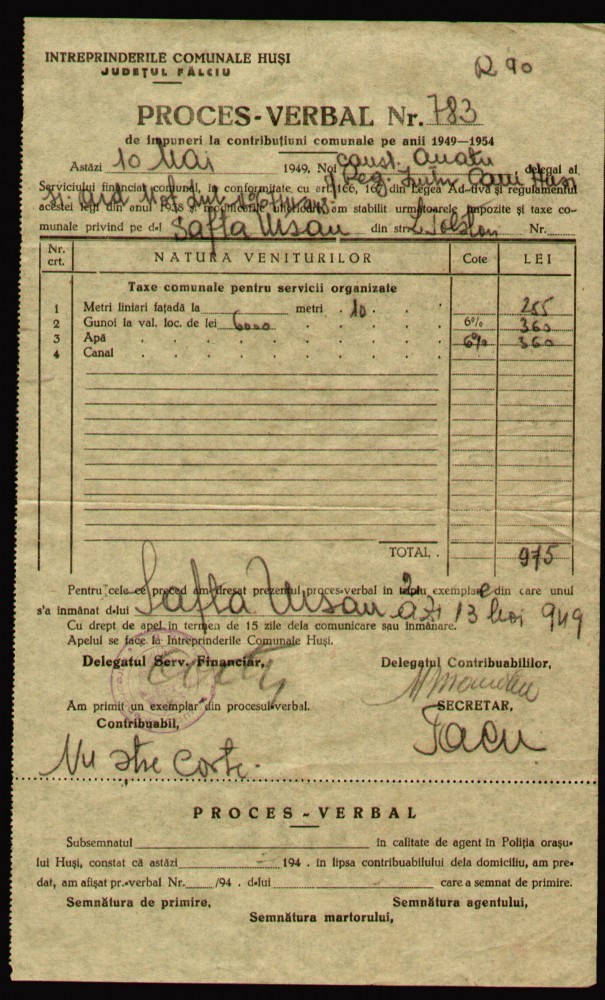 INTREPRINDERILE COMUNALE HUȘI
JUDEȚUL FĂLCIU
R 90
PROCES-VERBAL Nr. 783
de impuneri la contribuțiuni comunale pe anii 1949—1954
Astăzi 10 Mai 1949, Noi const. delegat al
Serviciului financiar comunal, în conformitate cu art. 166, din Legea Ad-tivă și regulamentul
acestei legi din anul 1938 și modificările ulterioare, am stabilit următoarele impozite și taxe co-
munale privind pe d-l Safta Ursan din str. L. Tolstoi Nr.
Nr. crt. NATURA VENITURILOR Cote LEI
Taxe comunale pentru servicii organizate
1 Metri liniari fațadă la metri 10 255
2 Gunoi la val. loc. de lei 6000 6% 360
3 Apă 6% 360
4 Canal
TOTAL 975
Pentru cele ce preced am dresat prezentul proces-verbal în 2 exemplare din care unul
s'a înmânat d-lui Safta Ursan azi 13 Mai 949
Cu drept de apel în termen de 15 zile dela comunicare sau înmânare.
Apelul se face la Intreprinderile Comunale Huși.
Delegatul Serv. Financiar, Delegatul Contribuabililor,
Am primit un exemplar din procesul-verbal. SECRETAR,
Contribuabil,
Nu știe carte.
PROCES-VERBAL
Subsemnatul în calitate de agent în Poliția orașu-
lui Huși, constat că astăzi 194 . în lipsa contribuabilului dela domiciliu, am pre-
dat, am afișat pr.-verbal Nr. /94 . d-lui care a semnat de primire.
Semnătura de primire, Semnătura agentului,
Semnătura martorului,